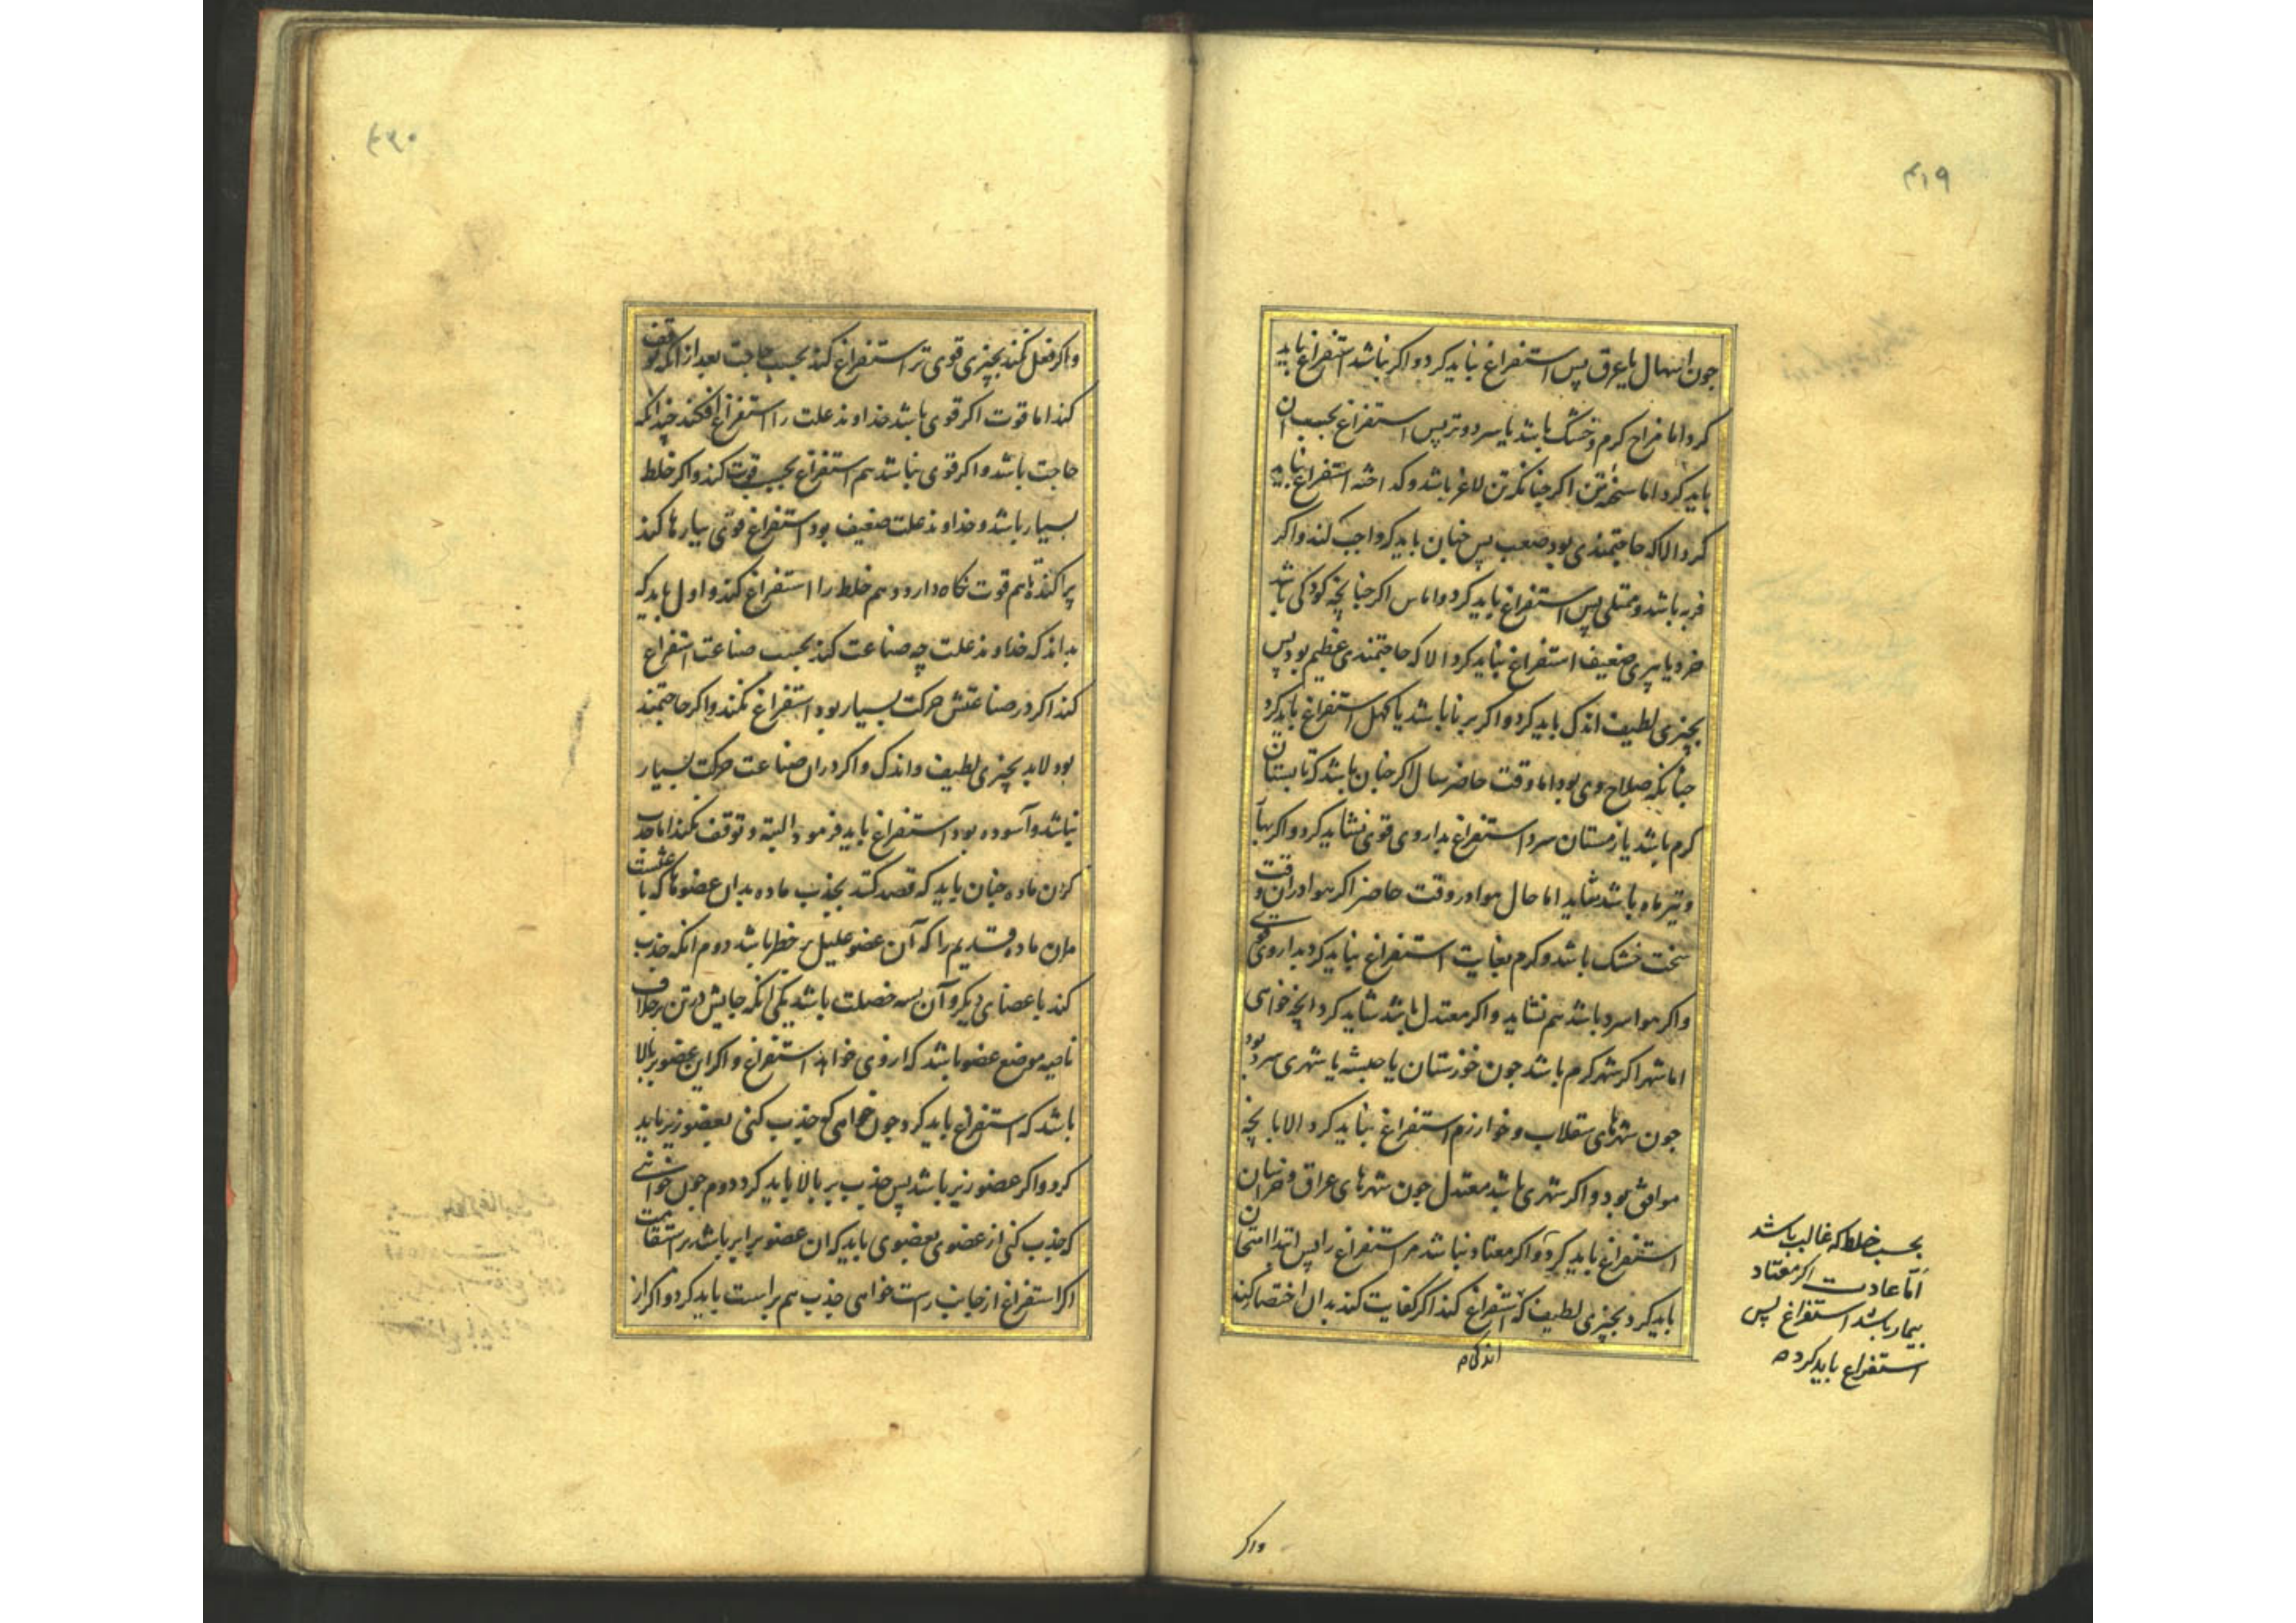 ۴۱۹
جون اسهال یا عرق پس استفراغ نباید کرد و اکر نباشد استفراغ باید
کرد اما مزاج کرم و خشک باشد یا سرد و تر پس استفراغ بحسب ان
باید کرد اما سخنه تن اکر جنانکه تن لاغر باشد و کداخته استفراغ نباید
کرد الا که حاجتمندی بود صعب پس جنان باید کرد واجب کند و اکر
فربه باشد و ممتلی پس استفراغ باید کرد و اما سن اکر جنانچه کودکی باشد
خرد یا پیری ضعیف استفراغ نباید کرد الا که حاجتمندی عظیم بود پس
بچیزی لطیف اندک باید کرد و اکر برنا باشد یا کهل استفراغ باید کرد
جنانکه صلاح وی بود اما وقت حاضر سال اکر جنان باشد که تابستان
کرم باشد یا زمستان سرد استفراغ بداروی قوی نشاید کرد و اکر بهار
و تیرماه باشد شاید اما حال هوا در وقت حاضر اکر هوا در ان وقت
سخت خشک باشد و کرم بغایت استفراغ نباید کرد بداروی قوی
و اکر هوا سرد باشد هم نشاید و اکر معتدل باشد شاید کرد انچه خواهی
اما شهر اکر شهر کرم باشد جون خوزستان یا حبشه یا شهری سرد بود
جون شهرهای سقلاب و خوارزم استفراغ نباید کرد الا بانچه
موافق بود و اکر شهری باشد معتدل جون شهرهای عراق و خراسان
استفراغ باید کرد و اکر معتاد نباشد مر استفراغ را پس ابتدا امتحان
باید کرد بچیزی لطیف که استفراغ کند اکر کفایت کند بدان اختصار کند
اندکی م
بحسب خلط که غالب باشد
اما عادت اکر معتاد
بیمار باشد استفراغ پس
استفراغ باید کرد ه
واکر
۴۲۰
و اکر فعل نکند بچیزی قوی تر استفراغ کند بحسب حاجت بعد از انکه توقف
کند اما قوت اکر قوی باشد خداوند علت را استفراغ افکند جندانکه
حاجت باشد و اکر قوی نباشد هم استفراغ بحسب قوت کند و اکر خلط
بسیار باشد و خداوند علت ضعیف بود استفراغ قوی ببارها کند
پراکنده تا هم قوت نکاه دارد و هم خلط را استفراغ کند و اول باید که
بداند که خداوند علت چه صناعت کند بحسب صناعت استفراغ
کند اکر در صناعتش حرکت بسیار بود استفراغ نکند و اکر حاجتمند
بود لابد بچیزی لطیف و اندک و اکر در ان صناعت حرکت بسیار
نباشد و آسوده بود استفراغ باید فرمود البته و توقف نکند اما جذب
کردن ماده جنان باید که قصد کند بجذب ماده بدان عضوها که
مران ماده قدیم را که آن عضو علیل بر خطر باشد دوم انکه جذب
کند باعضای دیکر و آن بسه خصلت باشد یکی انکه جایش در تن برخلاف
ناحیه موضع عضو باشد که از وی خواهد استفراغ و اکر این عضو بر بالا
باشد که استفراغ باید کرد جون خواهی که جذب کنی بعضو زیر باید
کرد و اکر عضو زیر باشد پس جذب بر بالا باید کرد دوم جون خواهی
که جذب کنی از عضوی بعضوی باید که ان عضو برابر باشد بر استقامت
اکر استفراغ از جانب راست خواهی جذب هم براست باید کرد و اکر از